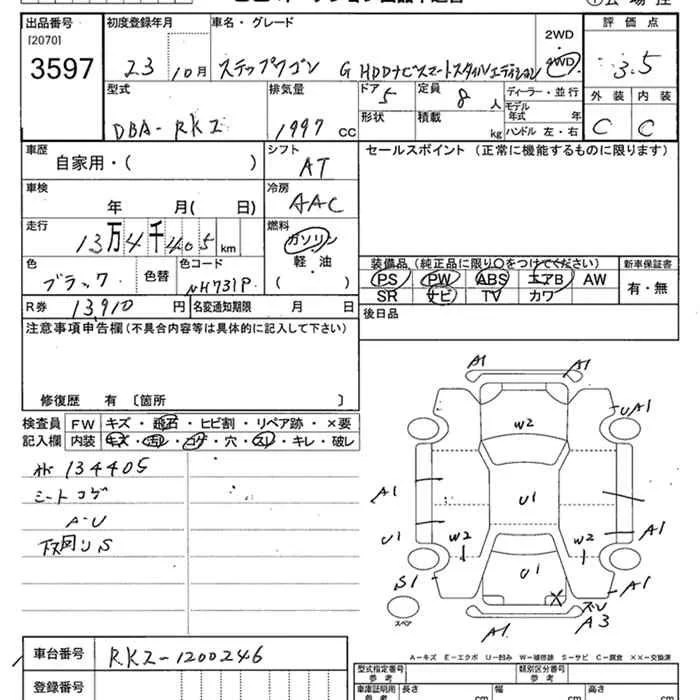 出品番号 初度登録年月 車名・グレード 評価点
[2070]
3597
23 10月 ステップワゴン G HDDナビスマートスタイルエディション 2WD 4WD 3.5
型式 排気量 ドア 定員 ディーラー・並行 外装 内装
DBA-RK2 1997 CC 5 8人
形状 積載 kg モデル年式 年
ハンドル 左・右 C C
車歴 シフト セールスポイント (正常に機能するものに限ります)
自家用・( ) AT
車検 冷房
年 月( 日) AAC
走行 燃料
13万4千405km ガソリン
軽・油
( )
色 色替 色コード
ブラック NH731P
装備品 (純正品に限り○をつけてください) 新車保証書
PS PW ABS エアB AW 有・無
SR ナビ TV カワ
R券 13910円 名変通知期限 月 日 後日品
注意事項申告欄 (不具合内容等は具体的に記入して下さい)
修復歴 有 〔箇所 〕
検査員 FW キズ・飛石・ヒビ割・リペア跡・×要
記入欄 内装 キズ・汚レ・コゲ・穴・スレ・キレ・破レ
134405
シートコゲ
A・U
下回りS
A1 A1
W2 UA1
A1 U1
U1 W2 W2 A1
S1 U1 A1
スペア X ズレ
A1 A3
A-キズ E-エクボ U-凹み W-補修跡 S-サビ C-腐食 ××-交換済
車台番号 RK2-1200246
登録番号
型式指定番号 参考 類別区分番号 参考
車庫証明用 参考 長さ cm 幅 cm 高さ cm